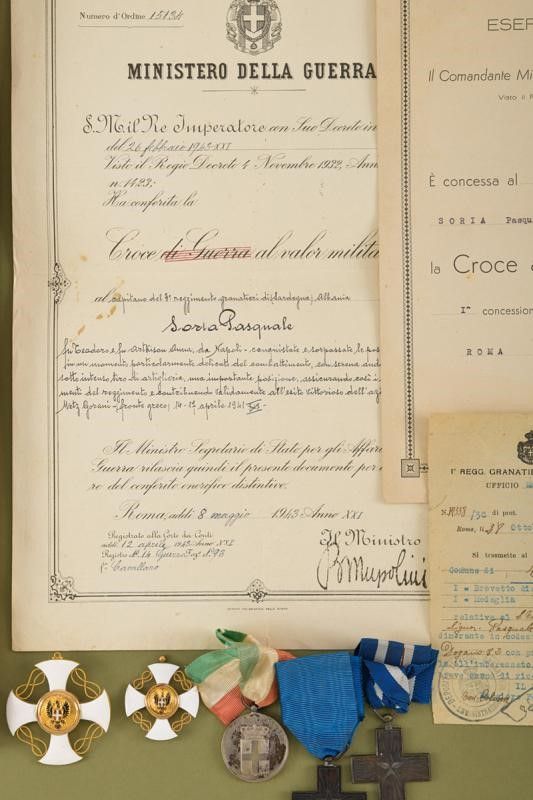 Numero d'Ordine 15134
MINISTERO DELLA GUERRA
S. M. il Re Imperatore con Suo Decreto in
del 26 febbraio 1943-XXI
Visto il Regio Decreto 4 Novembre 1932, Ann
n. 1423;
Ha conferita la
Croce di Guerra al valor milita
al capitano del 3° reggimento granatieri di Sardegna, Albania
Soria Pasquale
fu Teodoro e fu Anna, da Napoli - conquistate e sorpassate le pos
in un momento particolarmente delicato del combattimento, con serena
sotto intenso tiro di artiglieria, una importante posizione, assicurando così i
menti del reggimento e contribuendo validamente all'esito vittorioso dell'az
fronte greco, 14-17 aprile 1941
Il Ministro Segretario di Stato per gli Affari
Guerra rilascia quindi il presente documento per
re del conferito onorifico distintivo.
Roma, addì 8 maggio 1943 Anno XXI
Registrato alla Corte dei Conti
addì 12 aprile 1943 Anno XXI
Registro N. 14 Guerra Fog. N. 93
Cavallaro
Il Ministro
ESER
Il Comandante Mi
Visto il R
È concessa al
SORIA Pasqu
la Croce
concession
ROMA
1° REGG. GRANATIE
UFFICIO
di prot.
Roma, li 28 Otto
Si trasmette al
Comune di
1 = Brevetto di
1 = Medaglia
relativa al
Pasquale
dimorante in codes
con p
all'interessato
IL